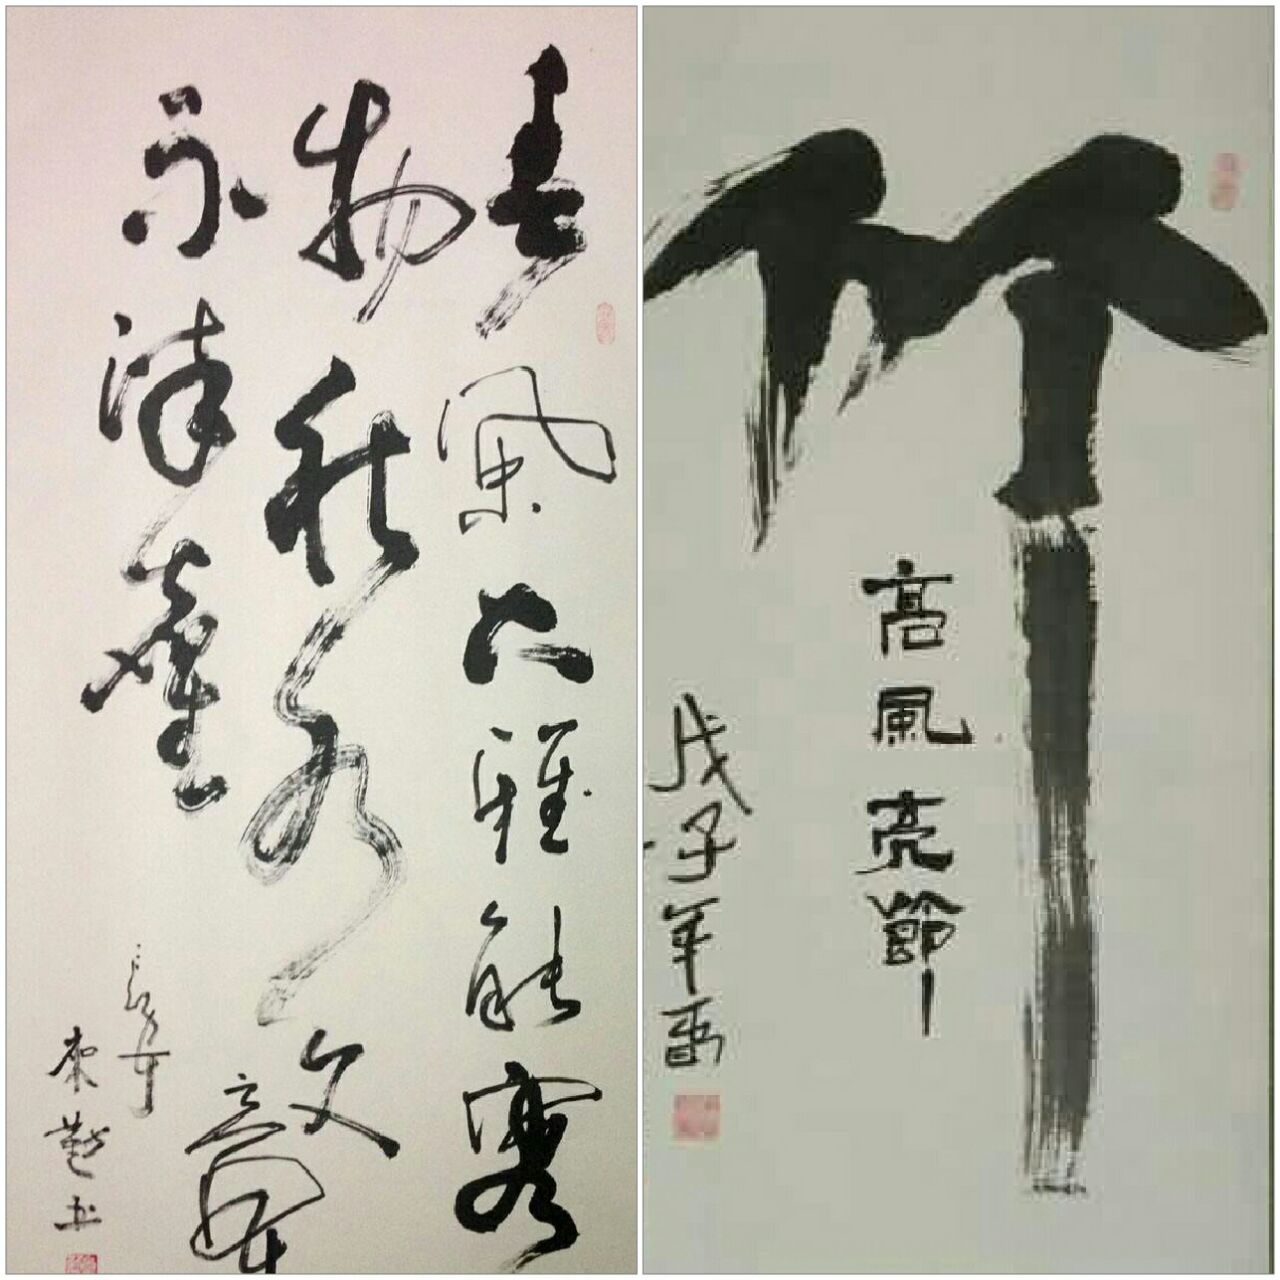 春風大雅能容
物秋水文章
不染塵
书
竹
高風亮節
戊子年